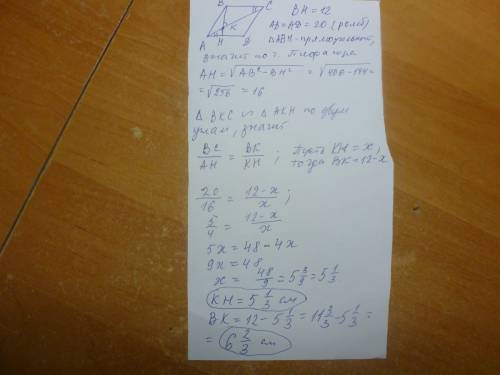 B C BH = 12
AB = AD = 20 (ромб)
K
△ABH - прямоугольный,
A H D
значит по т. Пифагора
AH = √AB² - BH² = √400 - 144 =
= √256 = 16
△BKC ∾ △AKH по двум
углам, значит
BC/AH = BK/KH ; Пусть KH = x,
тогда BK = 12-x
20/16 = 12-x/x ;
5/4 = 12-x/x
5x = 48 - 4x
9x = 48
x = 48/9 = 5 3/9 = 5 1/3
KH = 5 1/3 см
BK = 12 - 5 1/3 = 11 3/3 - 5 1/3 =
= 6 2/3 см